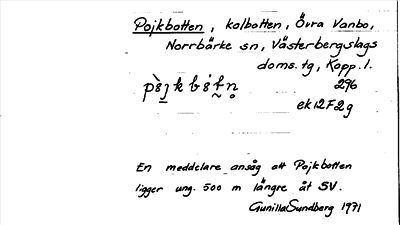 Pojkbotten, kolbotten, Övra Vanbo,
Norrbärke sn, Västerbergslags
doms.tg, Kopp.l.
296
ek12F2g
En meddelare ansåg att Pojkbotten
ligger ung. 500 m längre åt SV.
Gunilla Sundberg 1971